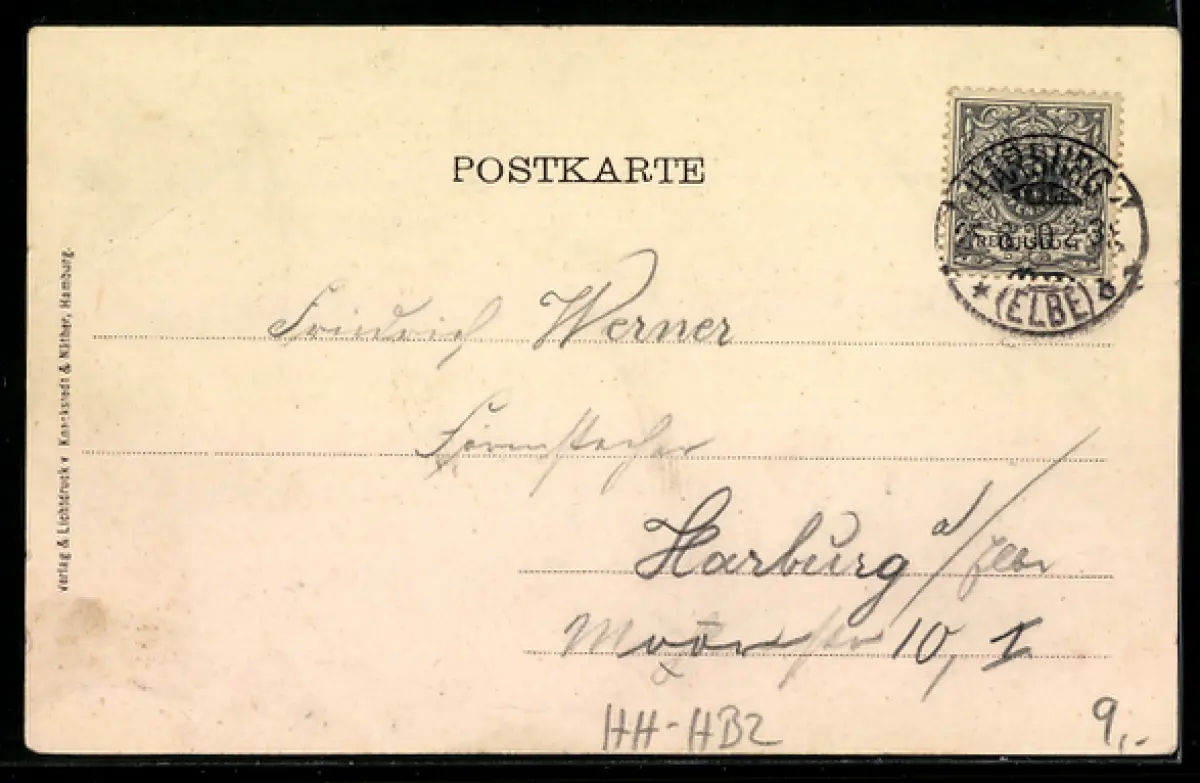 POSTKARTE
HARBURG
(ELBE)
Verlag & Lichtdruck v. Knackstedt & Näther, Hamburg.
Friedrich Werner
Formstecher
Harburg a/Elbe
10, I
HH-HBZ
9,-